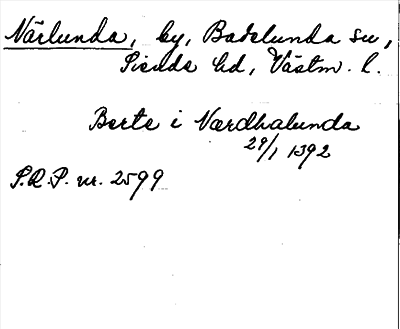 Närlunda, by, Badelunda sn,
Siende hd, Västm. l.
Berte i Nærdhalunda
29/1 1392
S.R.P. nr. 2599